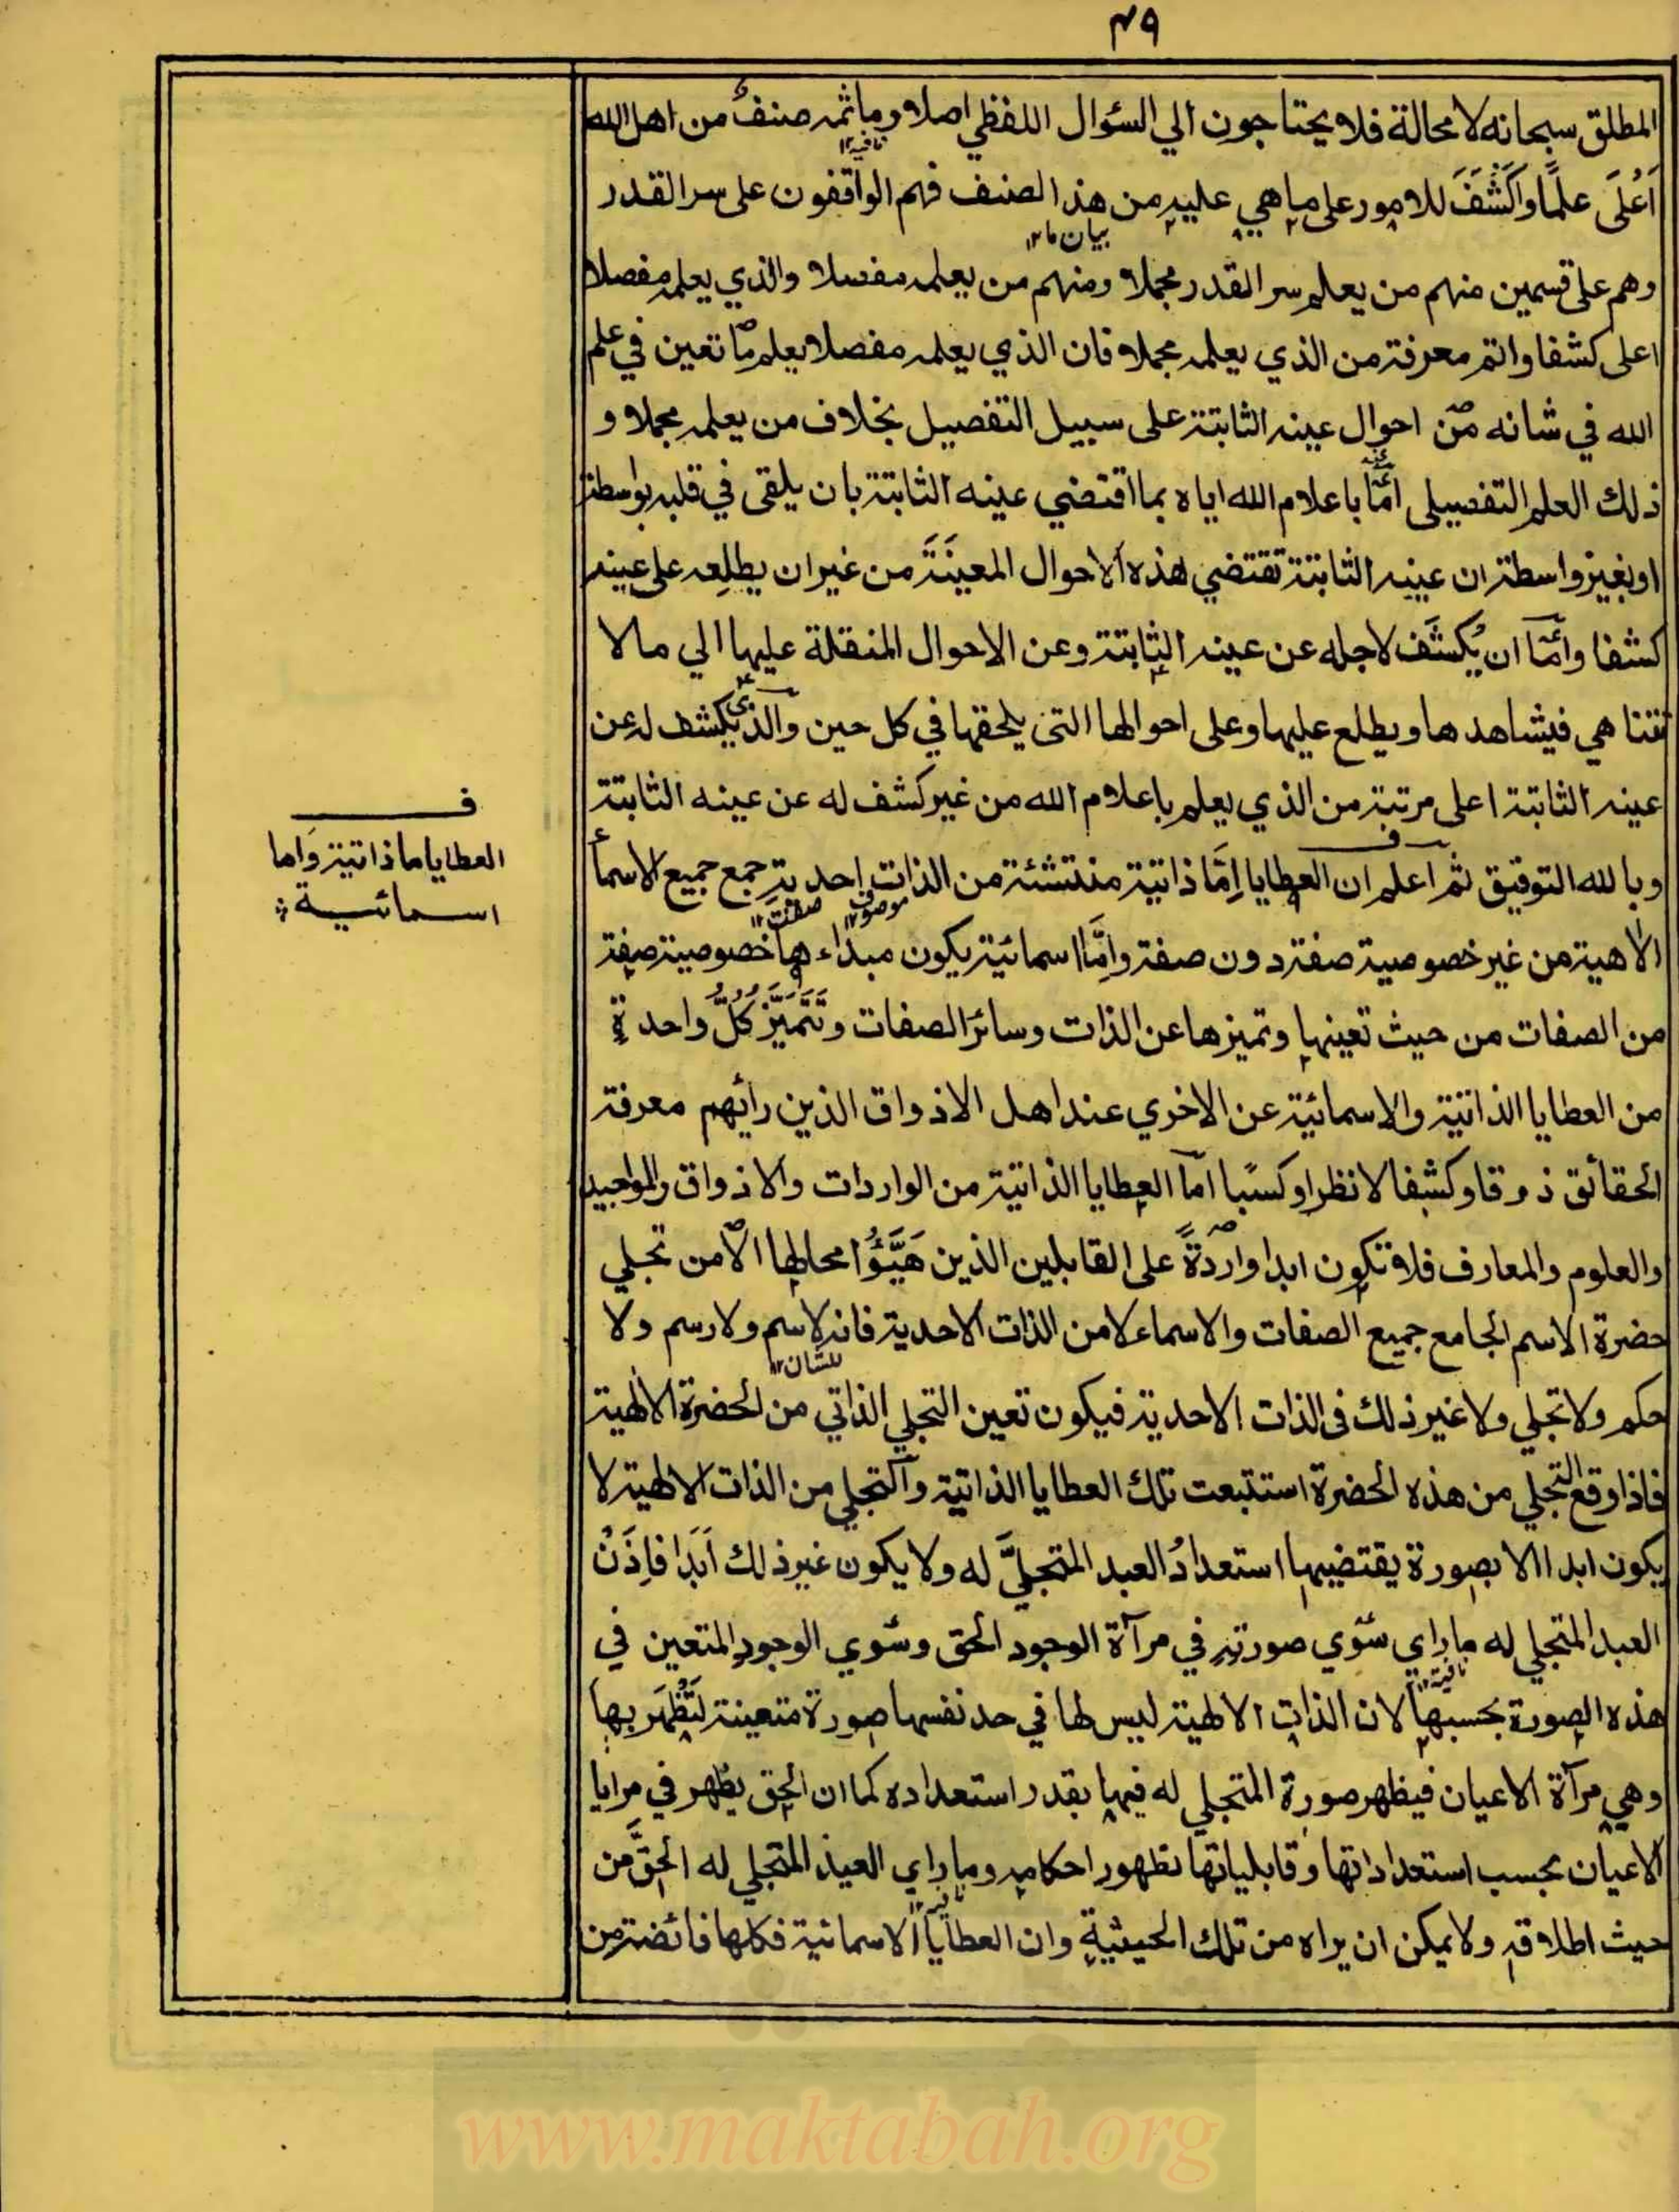 ٤٩
المطلق سبحانه لا محالة فلا يحتاجون الي السئوال اللفظي اصلا وما ثمه صنفٌ من اهل الله
نافيه ١٢
اَعْلَى علمًا واَكْشَفَ للامور على ما هي عليه من هذا الصنف فهم الواقفون على سر القدر
بيان ما ١٢
وهم على قسمين منهم من يعلم سر القدر مجملا ومنهم من يعلمه مفصلا والذي يعلمه مفصلا
اعلى كشفا واتم معرفة من الذي يعلمه مجملا فان الذي يعلمه مفصلا يعلم ما تعين في علم
الله في شانه من احوال عينه الثابتة على سبيل التفصيل بخلاف من يعلمه مجملا و
ذلك العلم التفصيلي امّا با علام الله اياه بما اقتضي عينه الثابتة بان يلقى في قلبه بواسطة
او بغير واسطة ان عينه الثابتة تقتضي هذه الاحوال المعينَةَ من غير ان يطلعه على عينه
كشفا وامّا ان يُكشَف لاجله عن عينه الثابتة وعن الاحوال المنقلة عليها الي ما لا
تتناهي فيشاهدها ويطلع عليها وعلى احوالها التى يلحقها في كل حين والذي يكشف له عن
عينه الثابتة اعلى مرتبة من الذي يعلم باعلام الله من غير كشف له عن عينه الثابتة
ف
العطايا اما ذاتية واما
اسمائية
وبالله التوفيق ثم اعلم ان العطايا اِمَّا ذاتية منتشئة من الذات احدية جمع جميع الاسماء
موصوف ١٢ صفت ١٢
الالهية من غير خصوصية صفة دون صفة واِمَّا اسمائية يكون مبداء ها خصوصية صفة
من الصفات من حيث تعينها وتميزها عن الذات وسائر الصفات وتَتَمَيَّزُ كُلُّ واحدةٍ
من العطايا الذاتية والاسمائية عن الاخري عند اهل الاذواق الذين رأيهم معرفة
الحقائق ذوقا وكشفا لا نظرا وكسبًا امّا العطايا الذاتية من الواردات والاذواق والمواجيد
والعلوم والمعارف فلا تكون ابدا واردَةً على القابلين الذين هَيَّؤُا محالها الّا من تجلي
حضرة الاسم الجامع جميع الصفات والاسماء لا من الذات الاحدية فانه لا اسم ولا رسم ولا
للشان ١٢
حكم ولا تجلي ولا غير ذلك فى الذات الاحدية فيكون تعين التجلي الذاتي من الحضرة الالهية
فاذا وقع التجلي من هذه الحضرة استتبعت تلك العطايا الذاتية والتجلي من الذات الالهية لا
يكون ابدا الا بصورة يقتضيها استعدادُ العبد المتجلَّي له ولا يكون غير ذلك اَبَدًا فاِذَنْ
العبد المتجلي له ما راي سوي صورته في مرآة الوجود الحق وسوي الوجود المتعين في
نافية ١٢
هذه الصورة بحسبها لان الذات الالهية ليس لها في حد نفسها صورة متعينة لتَظْهَر بها
وهي مرآة الاعيان فيظهر صورة المتجلي له فيها بقدر استعداده كما ان الحق يظهر في مرايا
الاعيان بحسب استعداداتها وقابلياتها بظهور احكامه وما راي العبد المتجلي له الحقَّ من
نافية ١٢
حيث اطلاقه ولا يمكن ان يراه من تلك الحيثية وان العطايا الاسمائية فكلها فائضة من
www.maktabah.org